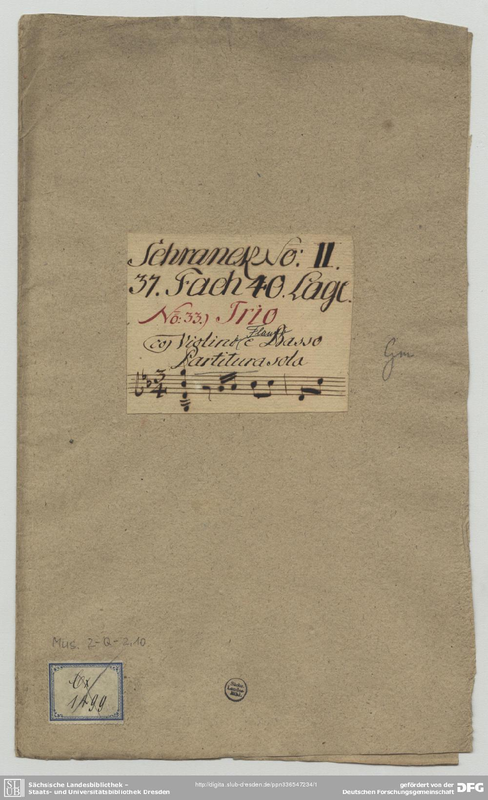 Schranck No: II.
37. Fach 40. Lage.
No: 33.) Trio
co Violino Flauto e Basso
Partitura sola
3
4
Gm
Mus. 2-Q-2,10
Cx
1499
SLUB
Sächsische Landesbibliothek –
Staats- und Universitätsbibliothek Dresden
http://digital.slub-dresden.de/ppn336547234/1
gefördert von der
Deutschen Forschungsgemeinschaft
DFG